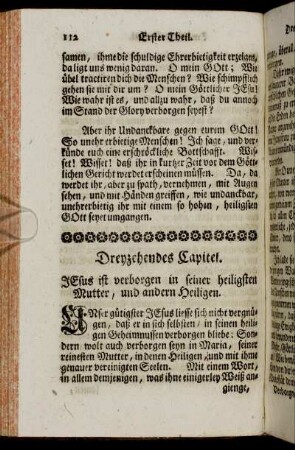 112 Erster Theil.
samen, ihme die schuldige Ehrerbietigkeit erzeigen,
da ligt uns wenig daran. O mein GOtt; Wie
übel tractiren dich die Menschen? Wie schimpfflich
gehen sie mit dir um? O mein Göttlicher JEsu!
Wie wahr ist es, und allzu wahr, daß du annoch
im Stand der Glory verborgen seyest?
Aber ihr Undanckbare gegen eurem GOtt!
So unehrerbietige Menschen! Ich sage, und ver-
künde euch eine erschröckliche Bottschafft. Wis-
set! Wisset! daß ihr in kurtzer Zeit vor dem Gött-
lichen Gericht werdet erscheinen müssen. Da, da
werdet ihr, aber zu spath, vernehmen, mit Augen
sehen, und mit Händen greiffen, wie undanckbar,
unehrerbietig ihr mit einem so hohen, heiligsten
GOtt seyet umgangen.
Dreyzehendes Capitel.
JEsus ist verborgen in seiner heiligsten
Mutter, und andern Heiligen.
UNser gütigster JEsus liesse sich nicht vergnü-
gen, daß er in sich selbsten / in seinen heili-
gen Geheimnussen verborgen bliebe: Son-
dern wolt auch verborgen seyn in Maria, seiner
reinesten Mutter, in denen Heiligen, und mit ihme
genauer vereinigten Seelen. Mit einem Wort,
in allem demjenigen, was ihne einigerley Weiß an-
gienge,